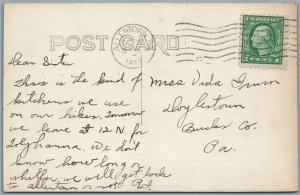 ALLENTOWN
1917
POST CARD
U.S. POSTAGE
Dear Sister
This is the kind of
kitchens we use
on our hikes. Tomorrow
we leave at 12 N for
Tobyhanna. We don't
know how long or
whether we will get back
to allentown or not.
Miss Vida
Doylestown
Bucks Co.
Pa.